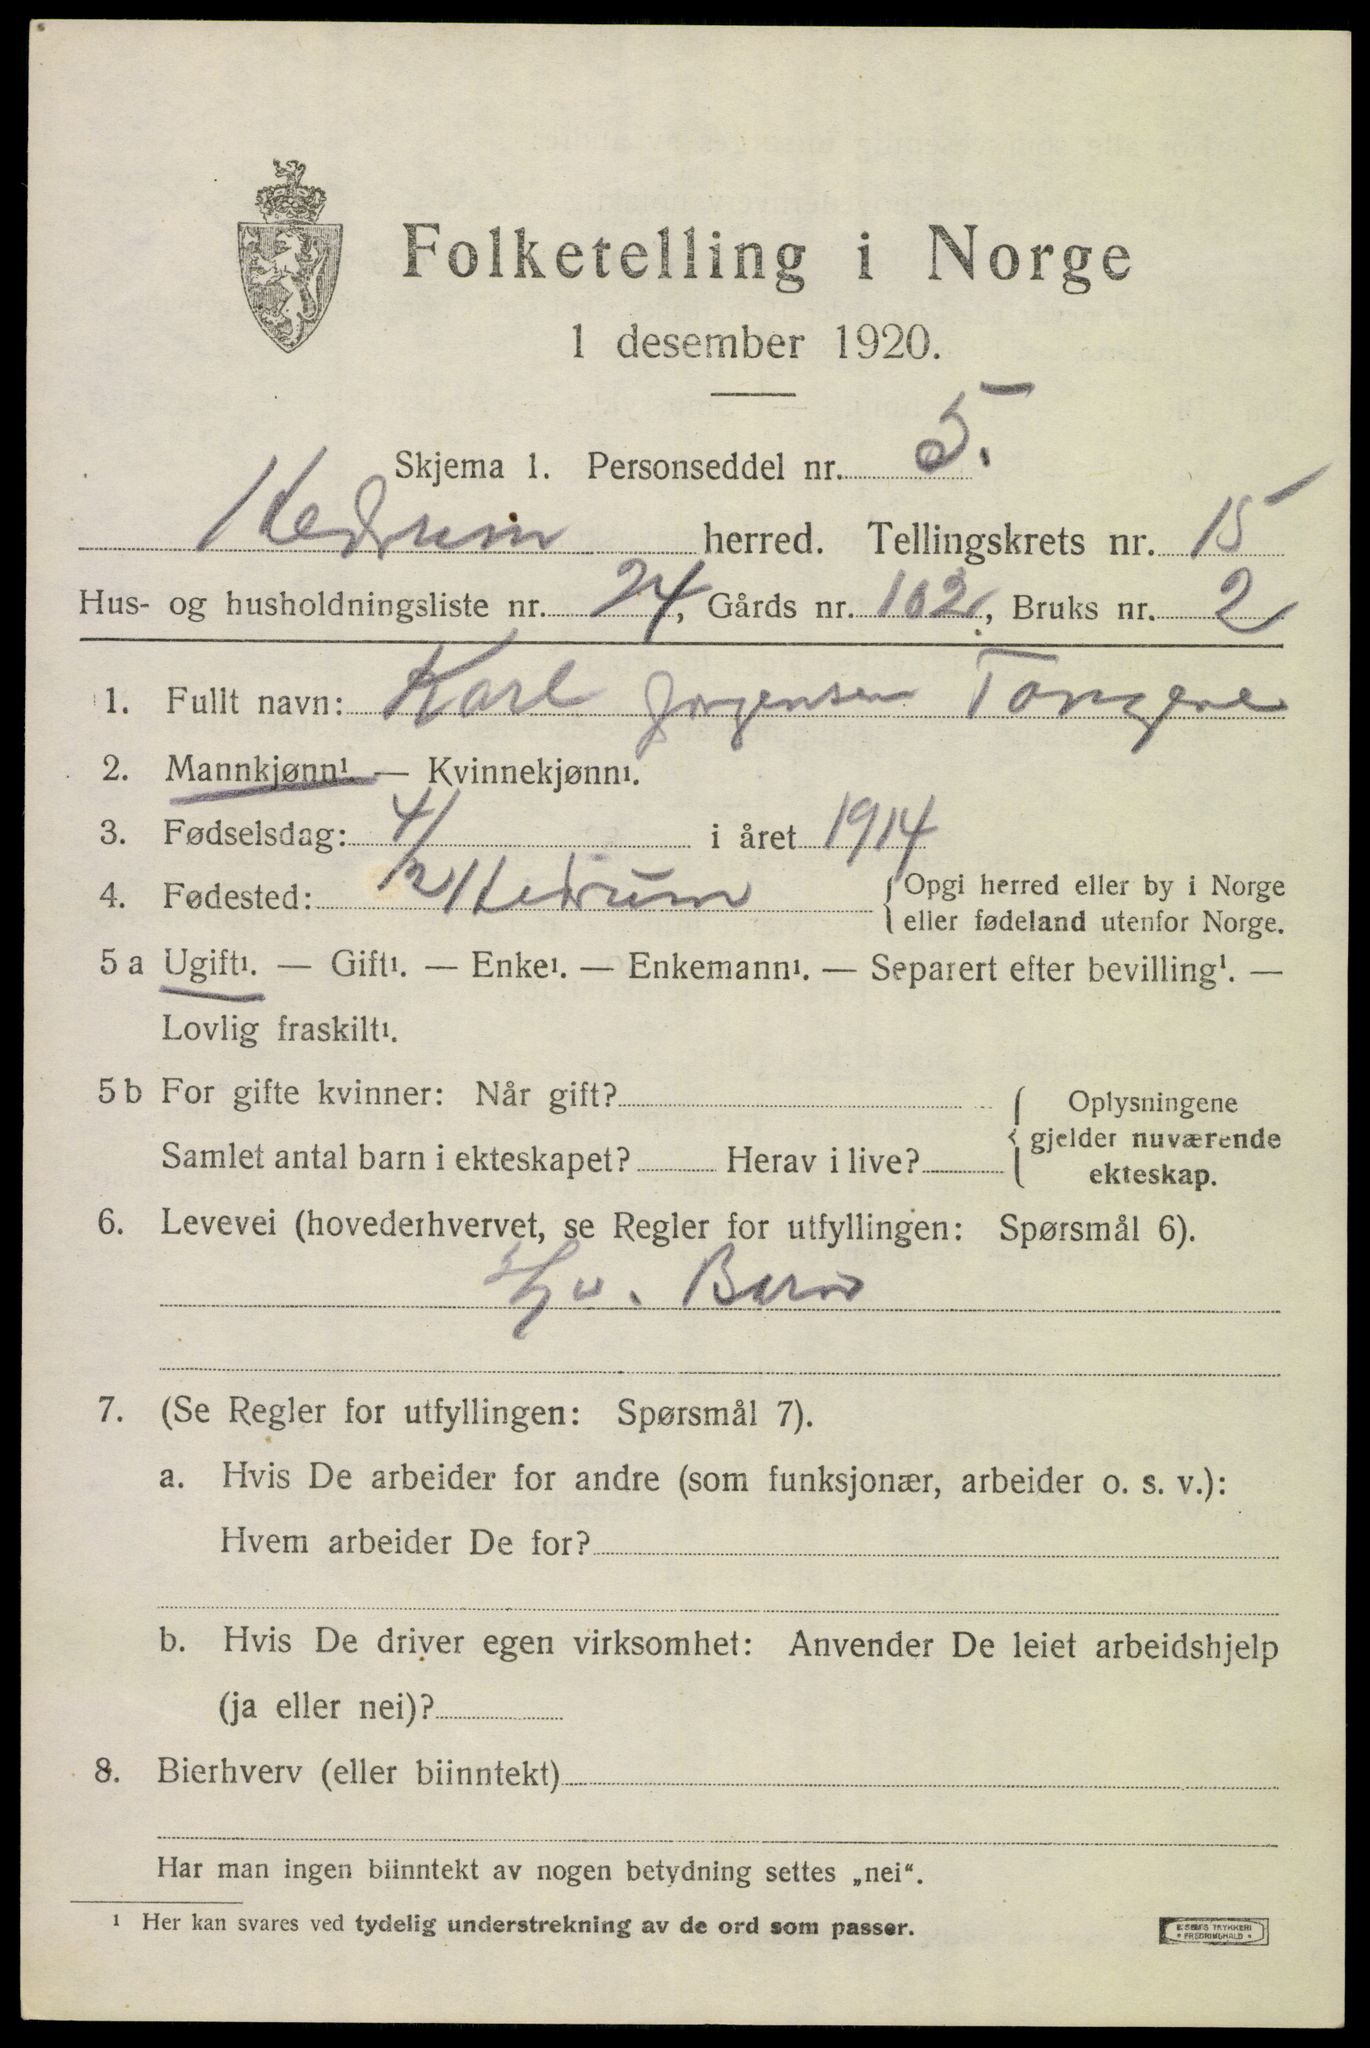 Folketelling i Norge
1 desember 1920.
Skjema 1. Personseddel nr. 5.
Hedrum herred. Tellingskrets nr. 15
Hus- og husholdningsliste nr. 24, Gårds nr. 102, Bruks nr. 2
1. Fullt navn: Karl Jørgensen
2. Mannkjønn¹. — Kvinnekjønn¹.
3. Fødselsdag: 4/2 i året 1914
4. Fødested: Hedrum { Opgi herred eller by i Norge
eller fødeland utenfor Norge.
5 a Ugift¹. — Gift¹. — Enke¹. — Enkemann¹. — Separert efter bevilling¹. —
Lovlig fraskilt¹.
5 b For gifte kvinner: Når gift?
Samlet antal barn i ekteskapet? Herav i live?
{ Oplysningene
gjelder nuværende
ekteskap.
6. Levevei (hovederhvervet, se Regler for utfyllingen: Spørsmål 6).
Barn
7. (Se Regler for utfyllingen: Spørsmål 7).
a. Hvis De arbeider for andre (som funksjonær, arbeider o. s. v.):
Hvem arbeider De for?
b. Hvis De driver egen virksomhet: Anvender De leiet arbeidshjelp
(ja eller nei)?
8. Bierhverv (eller biinntekt)
Har man ingen biinntekt av nogen betydning settes „nei“.
¹ Her kan svares ved tydelig understrekning av de ord som passer.
E. SEMS TRYKKERI
• FREDRIKSHALD •